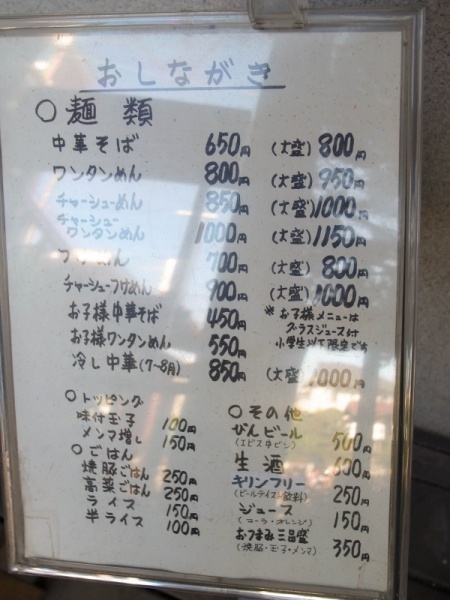 おしながき
○麺類
中華そば 650円 (大盛) 800円
ワンタンめん 800円 (大盛) 950円
チャーシューめん 850円 (大盛) 1000円
チャーシュー
ワンタンめん 1000円 (大盛) 1150円
つけめん 700円 (大盛) 800円
チャーシューつけめん 900円 (大盛) 1000円
お子様中華そば 450円
お子様ワンタンめん 550円
※お子様メニューは
グラスジュース付
小学生以下限定です
冷し中華(7~8月) 850円 (大盛) 1000円
○トッピング
味付玉子 100円
メンマ増し 150円
○ごはん
焼豚ごはん 250円
高菜ごはん 250円
ライス 150円
半ライス 100円
○その他
びんビール 500円
(エビス中ビン)
生酒 600円
キリンフリー 250円
(ビールテイスト飲料)
ジュース 150円
(コーラ・オレンジ)
おつまみ三品盛 350円
(焼豚・玉子・メンマ)